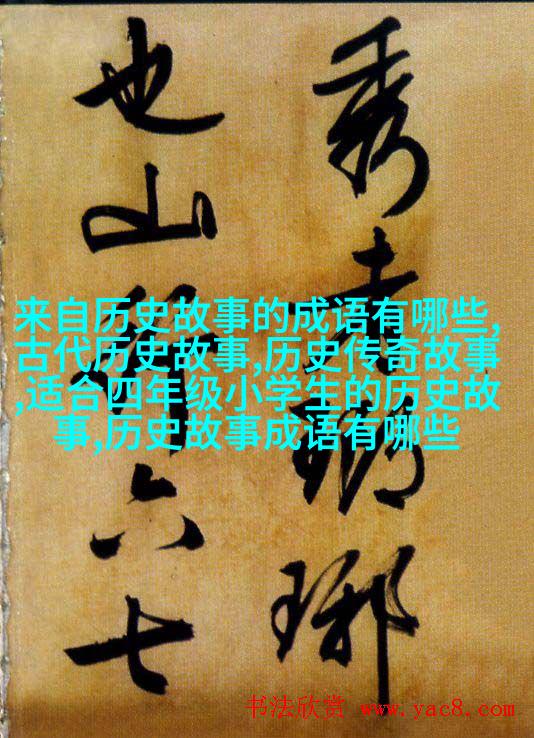 秀者瑯琊
也山行六七
来自历史故事的成语有哪些,
古代历史故事,历史传奇故事
,适合四年级小学生的历史故
事,历史故事成语有哪些
书法欣赏 www.yac8.com